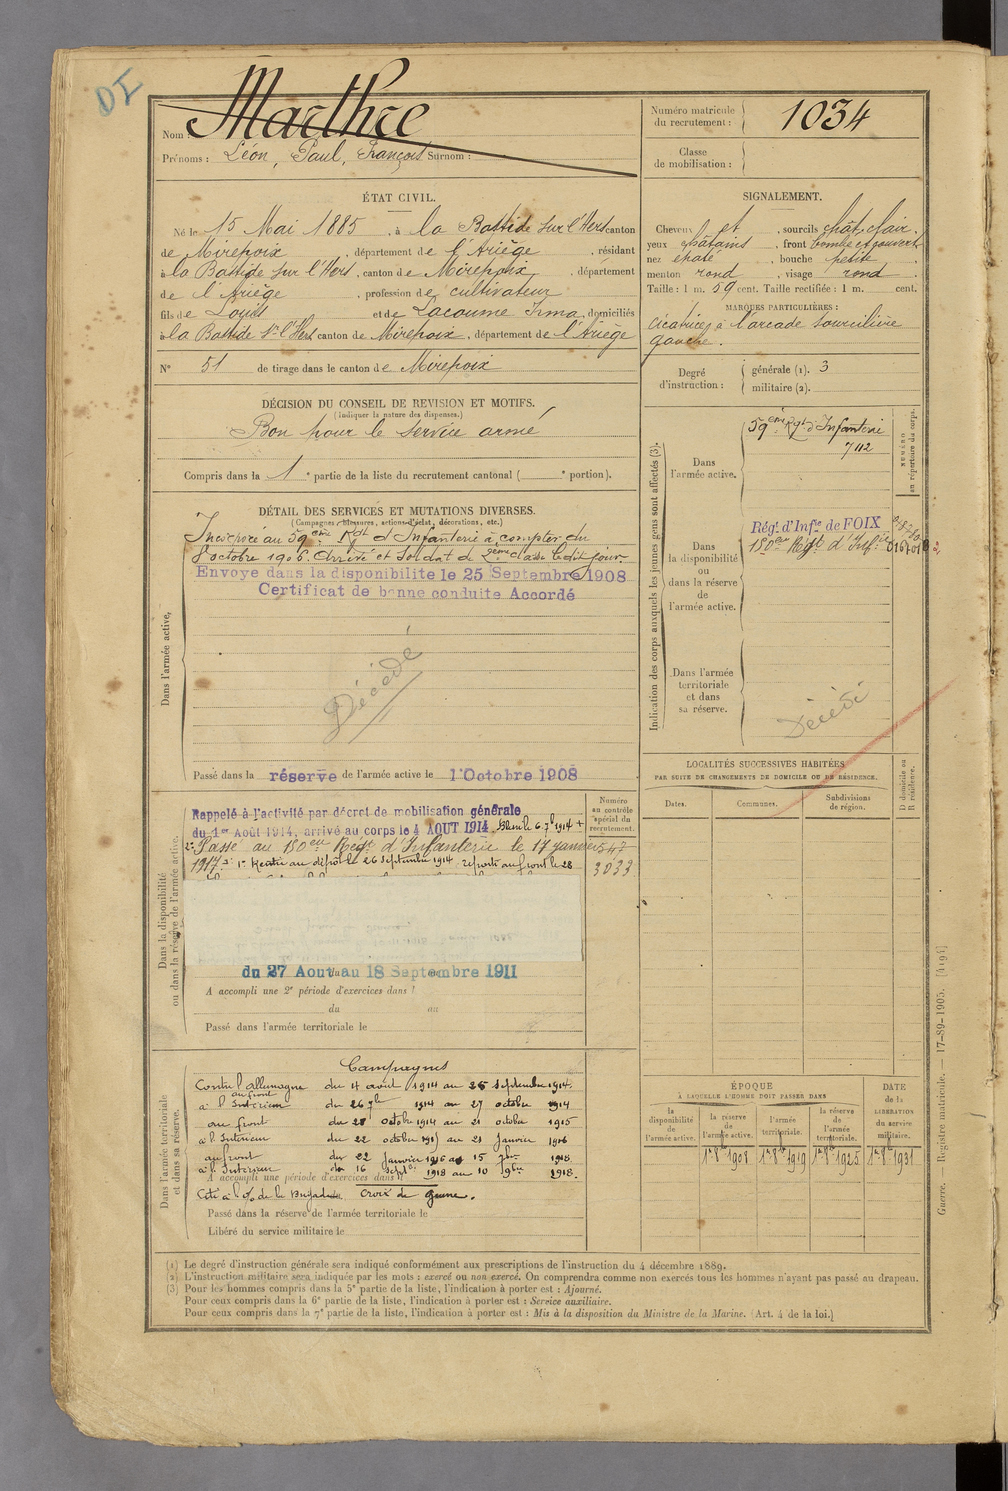 DI
Nom : Marthre
Prénoms : Léon, Paul, François Surnom :
Numéro matricule du recrutement : 1034
Classe de mobilisation :
ÉTAT CIVIL.
Né le 15 Mai 1885, à la Bastide sur l'Hers canton
de Mirepoix, département de l'Ariège, résidant
à la Bastide sur l'Hers, canton de Mirepoix, département
de l'Ariège, profession de cultivateur
fils de Louis et de Lacoume Irma, domiciliés
à la Bastide sr l'Hers canton de Mirepoix, département de l'Ariège
N° 51 de tirage dans le canton de Mirepoix
SIGNALEMENT.
Cheveux et, sourcils chât. clair.
yeux châtains, front bombé et couvert
nez épaté, bouche petite.
menton rond, visage rond
Taille : 1 m. 59 cent. Taille rectifiée : 1 m. cent.
MARQUES PARTICULIÈRES :
Cicatrices à l'arcade sourcilière
gauche.
Degré d'instruction : générale (1). 3
militaire (2).
DÉCISION DU CONSEIL DE REVISION ET MOTIFS.
(Indiquer la nature des dispenses.)
Bon pour le service armé
Compris dans la 1e partie de la liste du recrutement cantonal ( e portion).
DÉTAIL DES SERVICES ET MUTATIONS DIVERSES.
(Campagnes, blessures, actions d'éclat, décorations, etc.)
Dans l'armée active,
Incorporé au 59ème Rgt d'Infanterie à compter du
8 octobre 1906. Arrivé et soldat de 2ème classe ledit jour.
Envoye dans la disponibilite le 25 Septembre 1908
Certificat de bonne conduite Accordé
Décédé
Passé dans la réserve de l'armée active le 1 Octobre 1908
Indication des corps auxquels les jeunes gens sont affectés (3).
NUMÉRO au répertoire du corps.
Dans l'armée active.
59ème Rgt d'Infanterie
7112
Dans la disponibilité ou dans la réserve de l'armée active.
Régt d'Infie de FOIX
180ème Régt d'Infie
Dans l'armée territoriale et dans sa réserve.
Décédé
LOCALITÉS SUCCESSIVES HABITÉES
PAR SUITE DE CHANGEMENTS DE DOMICILE OU DE RÉSIDENCE.
Dates.
Communes.
Subdivisions de région.
D domicile ou R résidence.
Dans la disponibilité ou dans la réserve de l'armée active.
Numéro au contrôle spécial du recrutement.
Rappelé à l'activité par décret de mobilisation générale
du 1er Août 1914, arrivé au corps le 4 AOUT 1914
Passé au 180ème Régt d'Infanterie le 17 janvier
1917. Rentré au dépôt le 26 septembre 1914 reparti au front le 28
3033
du 27 Aout au 18 Septembre 1911
A accompli une 2e période d'exercices dans l
du au
Passé dans l'armée territoriale le
Dans l'armée territoriale et dans sa réserve.
Campagnes
Contre l'Allemagne du 4 août 1914 au 25 septembre 1914.
au front
à l'Intérieur du 26 7bre 1914 au 27 octobre 1914
au front du 28 octobre 1914 au 21 octobre 1915
à l'Intérieur du 22 octobre 1915 au 21 Janvier 1916
au front du 22 janvier 1916 au 15 7bre 1918.
à l'Intérieur du 16 sept. 1918 au 10 9bre 1918.
A accompli une période d'exercices dans l
Cité à l'O/ de la Brigade. Croix de guerre.
Passé dans la réserve de l'armée territoriale le
Libéré du service militaire le
ÉPOQUE
À LAQUELLE L'HOMME DOIT PASSER DANS
DATE de la LIBÉRATION du service militaire.
la disponibilité de l'armée active.
la réserve de l'armée active.
l'armée territoriale.
la réserve de l'armée territoriale.
1er 8bre 1908
1er 8bre 1919
1er 8bre 1925
1er 8bre 1931
(1) Le degré d'instruction générale sera indiqué conformément aux prescriptions de l'instruction du 4 décembre 1889.
(2) L'instruction militaire sera indiquée par les mots : exercé ou non exercé. On comprendra comme non exercés tous les hommes n'ayant pas passé au drapeau.
(3) Pour les hommes compris dans la 5e partie de la liste, l'indication à porter est : Ajourné.
Pour ceux compris dans la 6e partie de la liste, l'indication à porter est : Service auxiliaire.
Pour ceux compris dans la 7e partie de la liste, l'indication à porter est : Mis à la disposition du Ministre de la Marine. (Art. 4 de la loi.)
Guerre. — Registre matricule. — 17-89-1905. [4194]